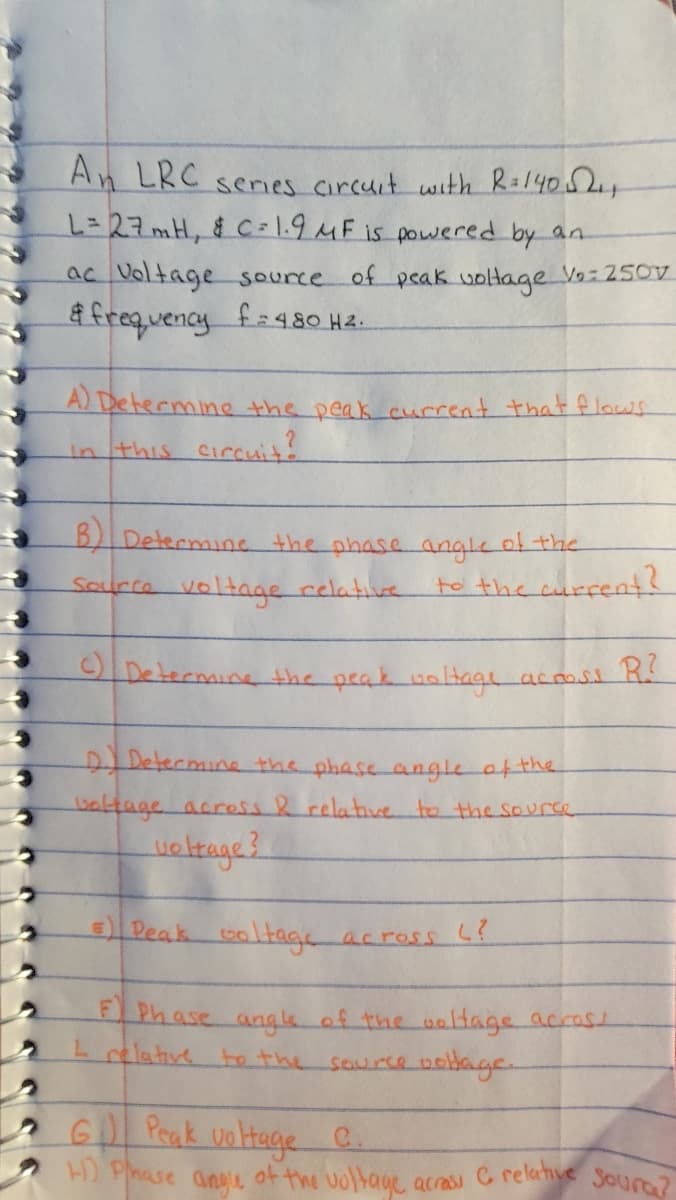 An LRC series circuit with R=140Ω,
L=27mH, & C=1.9 μF is powered by an
ac Voltage source of peak voltage V₀=250V
& frequency f=480 Hz.
A) Determine the peak current that flows
in this circuit?
B) Determine the phase angle of the
source voltage relative to the current?
C) Determine the peak voltage across R?
D.) Determine the phase angle of the
voltage across R relative to the source
voltage?
E) Peak voltage across L?
F) Phase angle of the voltage across
L relative to the source voltage.
G.) Peak voltage C.
H) Phase angle of the voltage across C relative source?